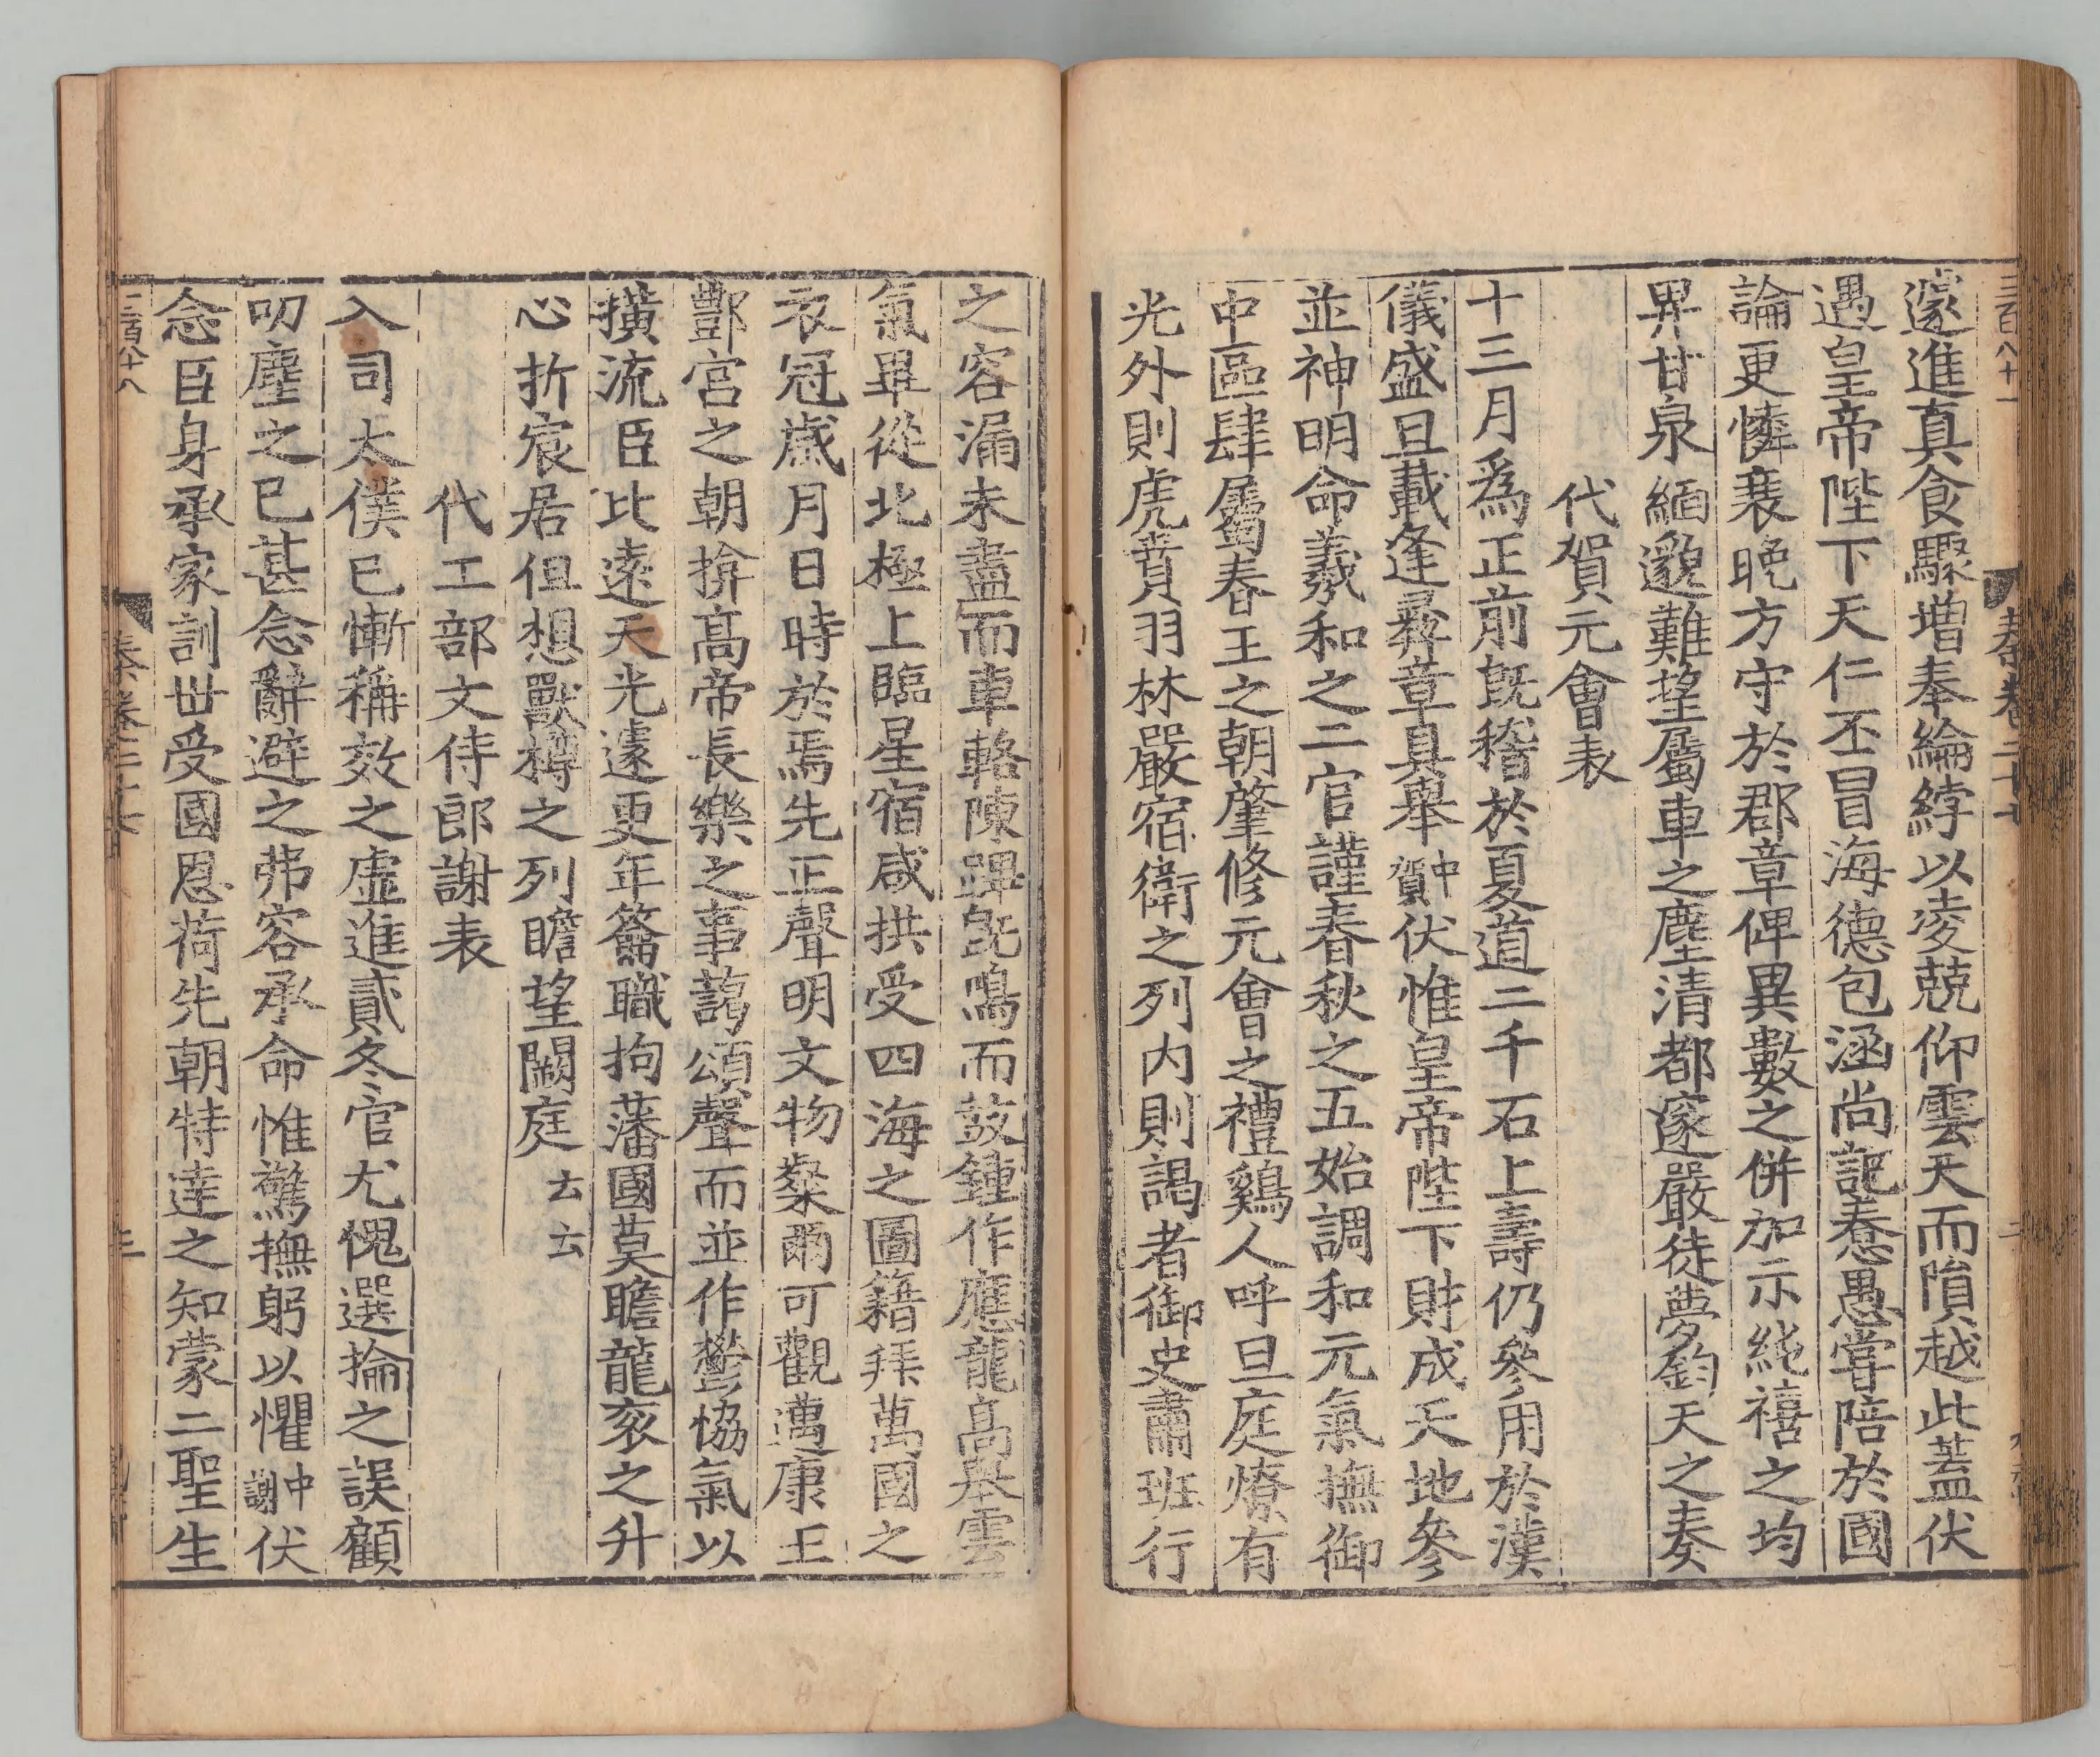 三百八十一
秦卷二十七
二
遽進真食驟增奉綸綍以凌兢仰雲天而隕越此蓋伏
遇皇帝陛下天仁丕冒海德包涵尚記惷愚嘗陪於國
論更憐衰晚方守於郡章俾異數之併加示純禧之均
畀甘泉緬邈難望屬車之塵清都邃嚴徒夢鈞天之奏
代賀元會表
十三月爲正前旣稽於夏道二千石上壽仍參用於漢
儀盛旦載逢彞章具舉中賀伏惟皇帝陛下財成天地參
並神明命羲和之二官謹春秋之五始調和元氣撫御
中區肆屬春王之朝肇修元會之禮鷄人呼旦庭燎有
光外則虎賁羽林嚴宿衛之列内則謁者御史肅班行
之容漏未盡而車輅陳蹕旣鳴而鼓鍾作應龍高舉雲
氣畢從北極上臨星宿咸拱受四海之圖籍拜萬國之
衣冠歲月日時於焉先正聲明文物粲爾可觀邁康王
酆宮之朝揜高帝長樂之事謌頌聲而並作鬱協氣以
横流臣比遠天光遽更年籥職拘藩國莫瞻龍衮之升
心折宸居但想獸樽之列瞻望闕庭云云
代工部文侍郎謝表
入司太僕已慚稱效之虛進貳冬官尤愧選掄之誤顧
叨塵之已甚念辭避之弗容承命惟驚撫躬以懼中謝伏
念臣身承家訓世受國恩荷先朝特達之知蒙二聖生
三百八十八
秦卷二十七
三